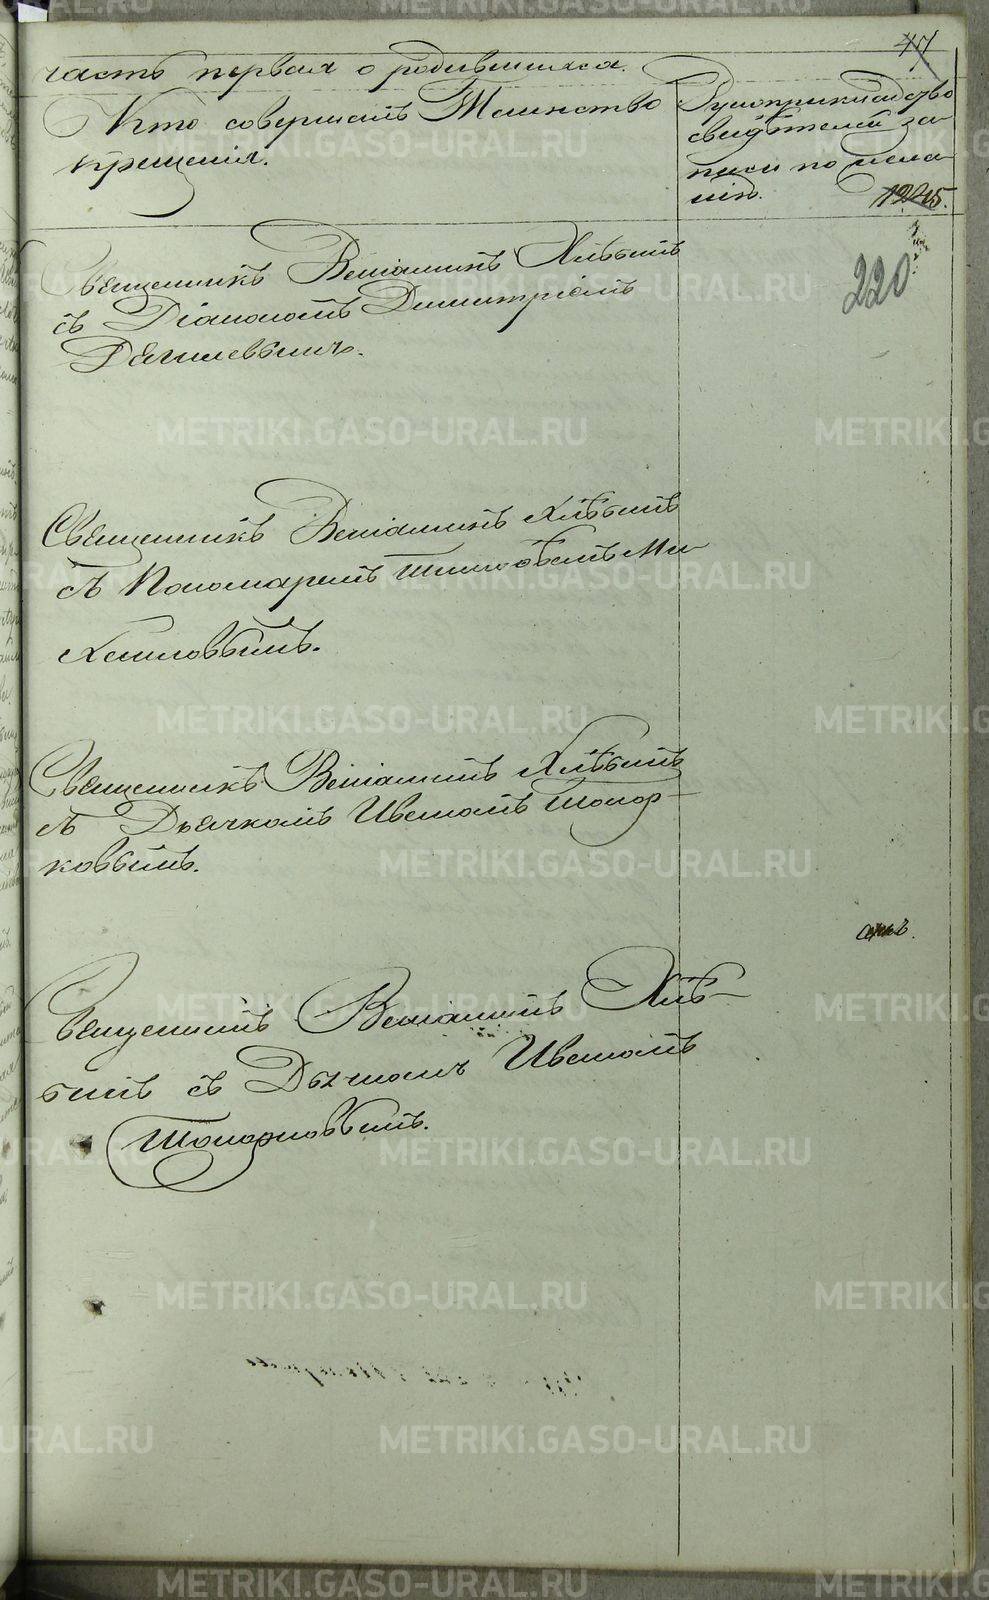 47
часть первая о родившихся.
Кто совершалъ Таинство
крещенія.
Рукоприкладство
свидѣтелей за-
писи по жела-
нію.
1245.
220
Священникъ Веніаминъ Хлѣбинъ
съ Діакономъ Димитріемъ
Священникъ Веніаминъ Хлѣбинъ
съ Пономаремъ Ми-
хайловымъ.
Священникъ Веніаминъ Хлѣбинъ
съ Дьячкомъ Иваномъ Топор-
ковымъ.
Священникъ Веніаминъ Хлѣ-
бинъ съ Дьячкомъ Иваномъ
Топорковымъ.
METRIKI.GASO-URAL.RU